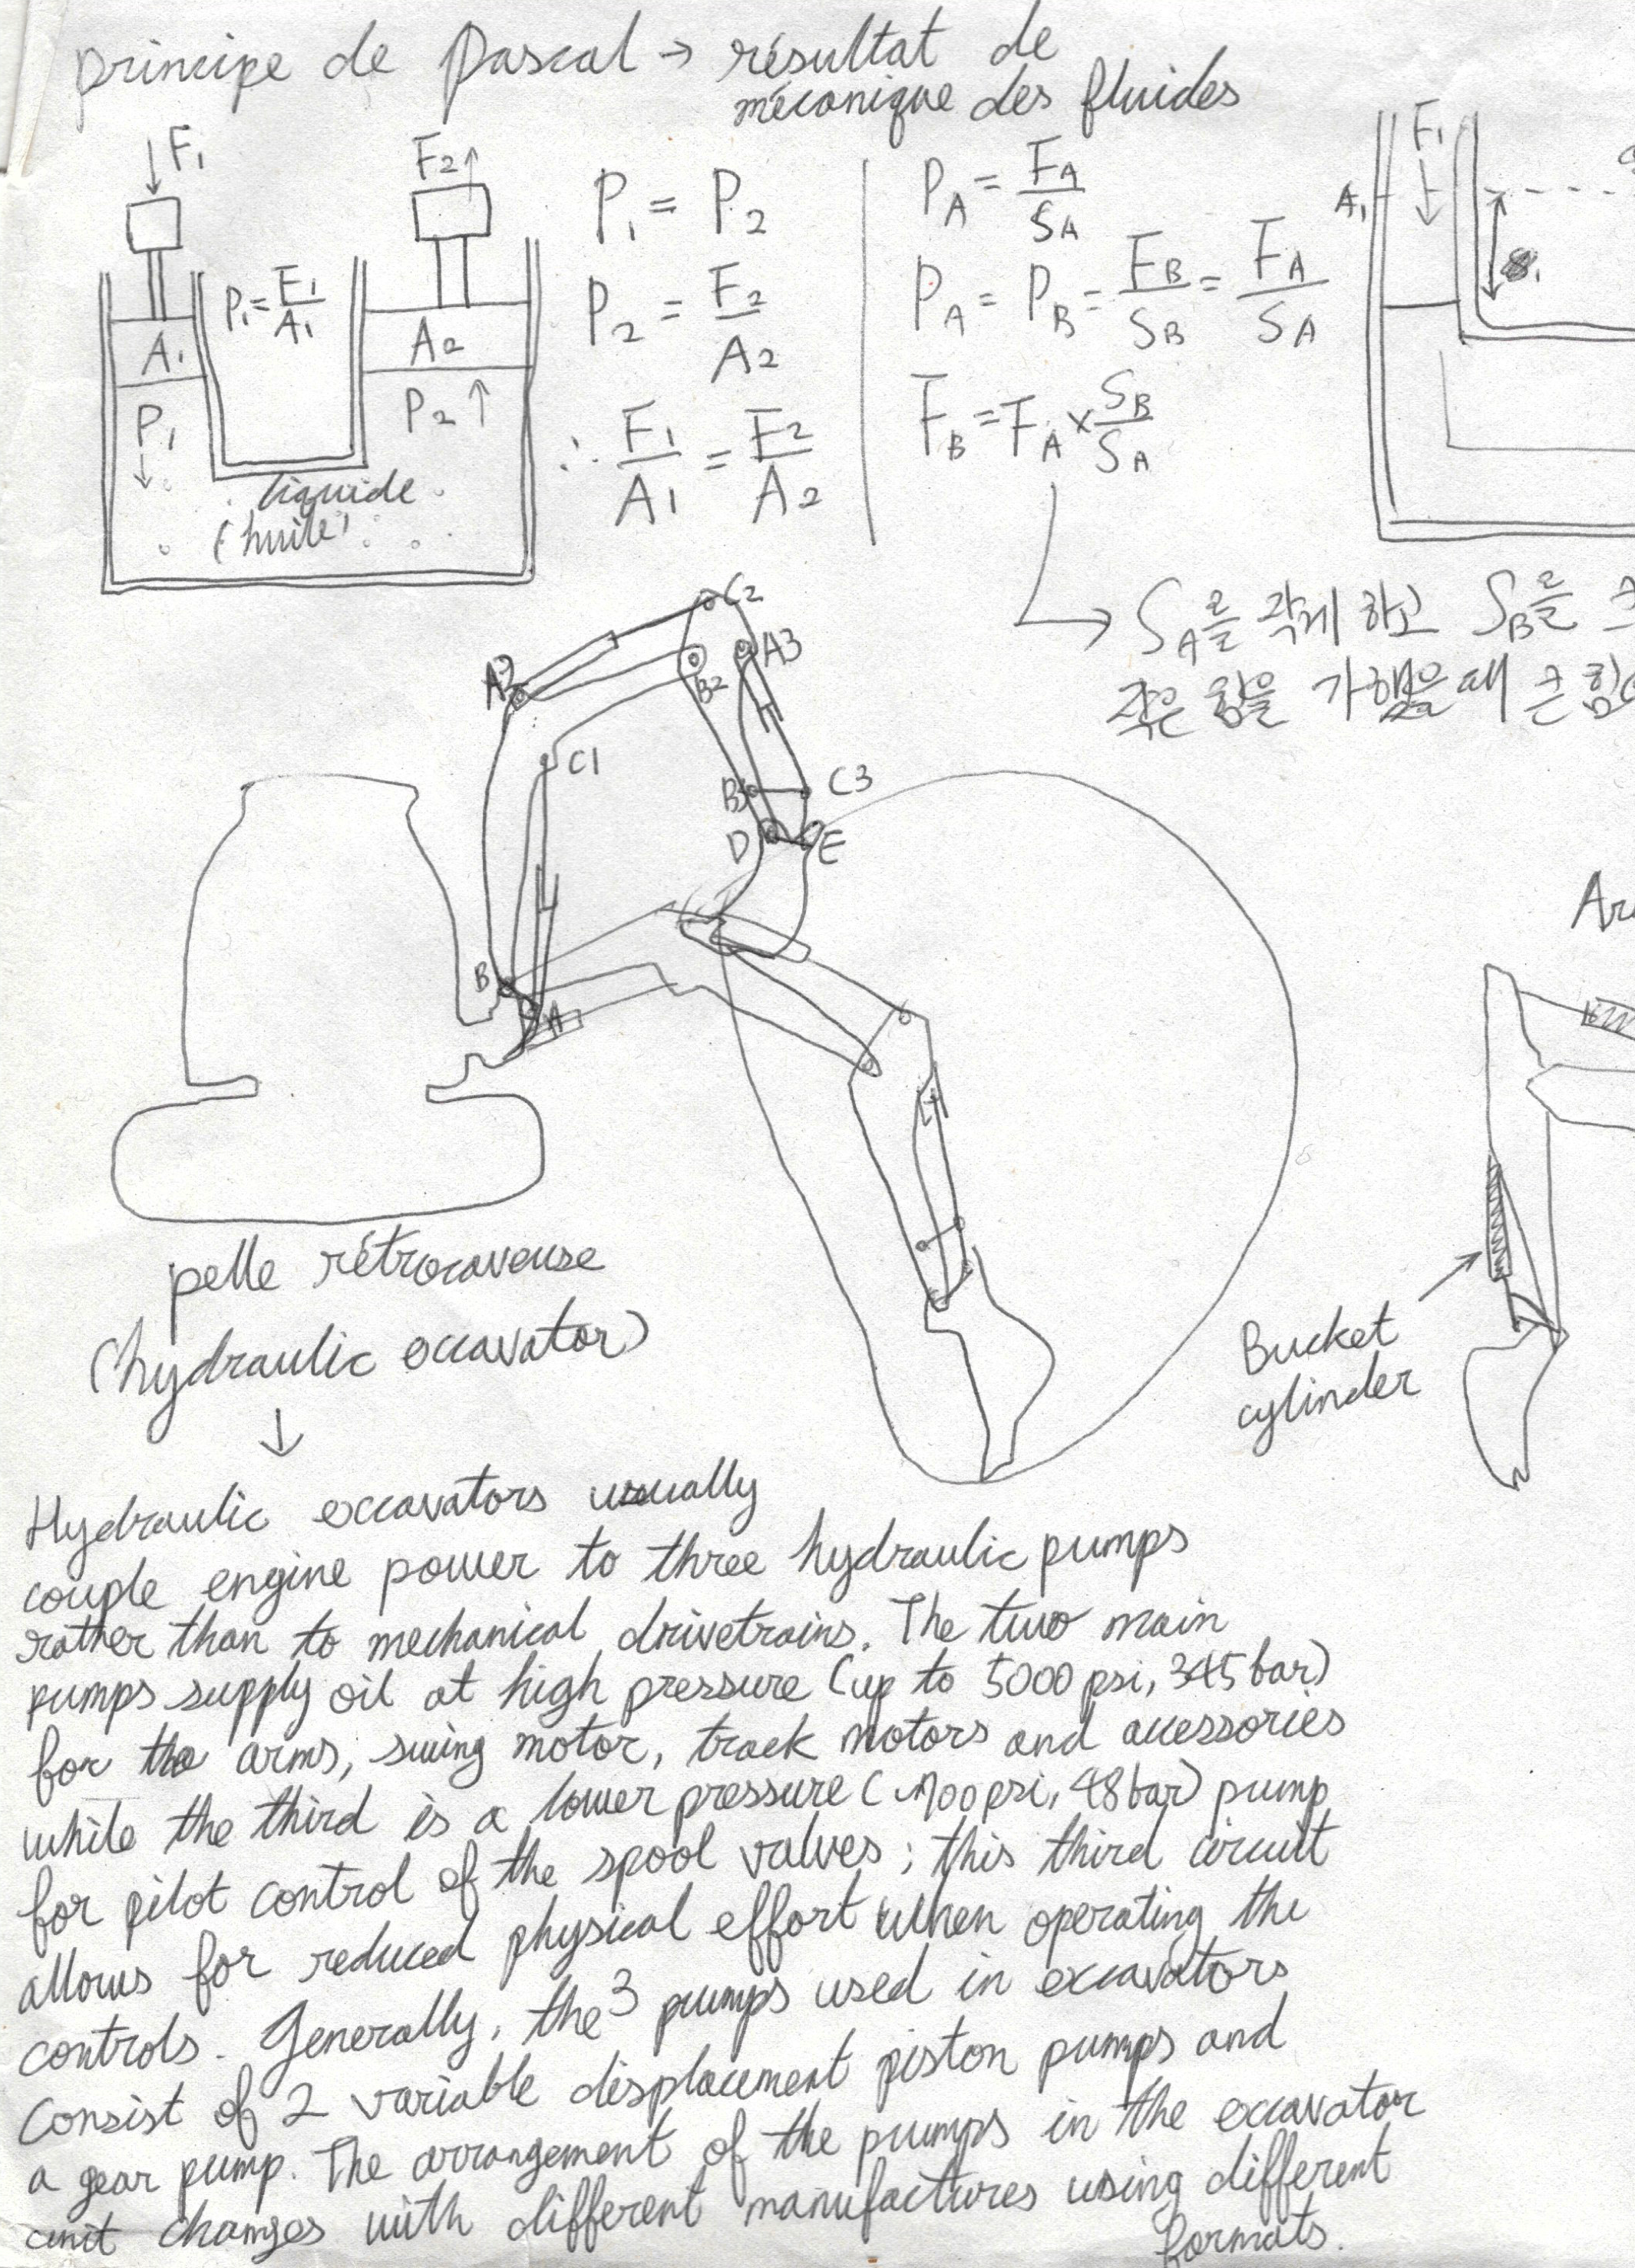 principe de Pascal → résultat de
mécanique des fluides
↓F₁
F₂↑
P₁ = F₁/A₁
A₁
A₂
P₁ ↓
P₂ ↑
liquide
(huile)
P₁ = P₂
P₂ = F₂/A₂
∴ F₁/A₁ = F₂/A₂
P_A = F_A/S_A
P_A = P_B = F_B/S_B = F_A/S_A
F_B = F_A × S_B/S_A
F₁
A₁
→ S_A를 작게 하고 S_B를
작은 힘을 가했을 때 큰 힘
C2
A2
A3
B2
C1
B3
C3
D
E
B
A
pelle rétrocaveuse
(hydraulic excavator)
↓
Bucket
cylinder
Hydraulic excavators usually
couple engine power to three hydraulic pumps
rather than to mechanical drivetrains. The two main
pumps supply oil at high pressure (up to 5000 psi, 345 bar)
for the arms, swing motor, track motors and accessories
while the third is a lower pressure (~700 psi, 48 bar) pump
for pilot control of the spool valves; this third circuit
allows for reduced physical effort when operating the
controls. Generally, the 3 pumps used in excavators
consist of 2 variable displacement piston pumps and
a gear pump. The arrangement of the pumps in the excavator
unit changes with different manufactures using different
formats.